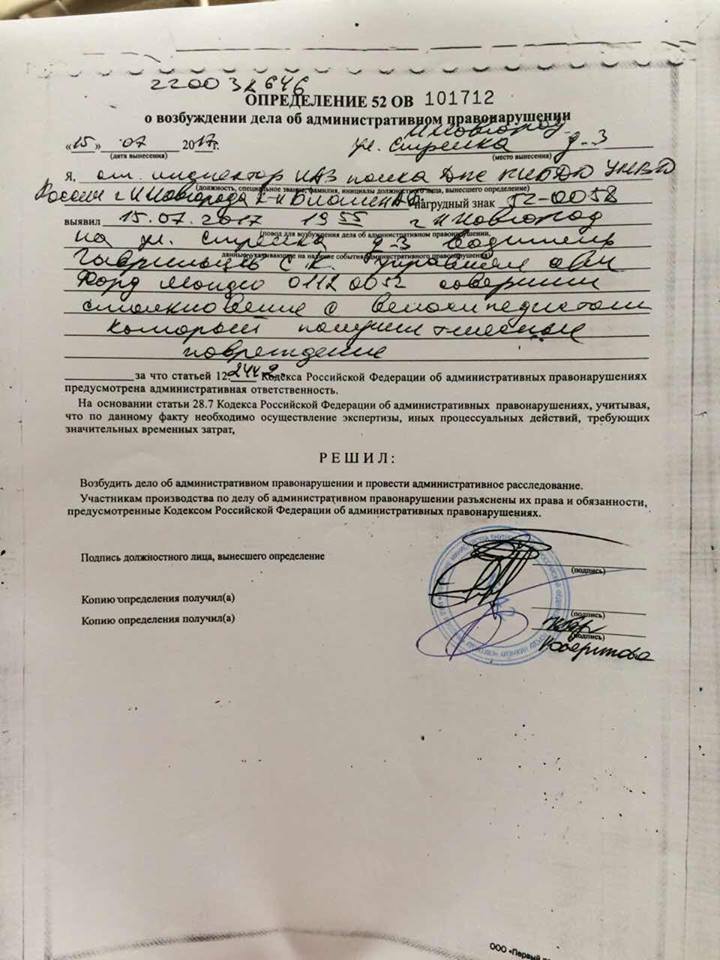 220032646
ОПРЕДЕЛЕНИЕ 52 ОВ 101712
о возбуждении дела об административном правонарушении
Н Новгород
«15» 07 2017г. ул. Стрелка д-3
(дата вынесения) (место вынесения)
Я, ст. инспектор ИАЗ полка ДПС ГИБДД УМВД
(должность, специальное звание, фамилия, инициалы должностного лица, вынесшего определение)
России г Н Новгорода к-н нагрудный знак 52-0058
выявил 15.07.2017 19 55 г Н Новгород
(повод для возбуждения дела об административном правонарушении,
на ул. Стрелка д-3 водитель
данные, указывающие на наличие события административного правонарушения)
С.К. управляя а/м
Форд Мондео 0112 0052 совершил
столкновение с велосипедистом
который получил телесные
повреждение
за что статьей 12.24ч.2 Кодекса Российской Федерации об административных правонарушениях
предусмотрена административная ответственность.
На основании статьи 28.7 Кодекса Российской Федерации об административных правонарушениях, учитывая,
что по данному факту необходимо осуществление экспертизы, иных процессуальных действий, требующих
значительных временных затрат,
РЕШИЛ:
Возбудить дело об административном правонарушении и провести административное расследование.
Участникам производства по делу об административном правонарушении разъяснены их права и обязанности,
предусмотренные Кодексом Российской Федерации об административных правонарушениях.
Подпись должностного лица, вынесшего определение
(подпись)
Копию определения получил(а)
(подпись)
Копию определения получил(а)
(подпись)
ООО «Первый